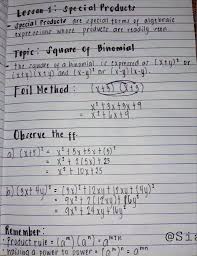 Lesson 1: Special Products
- Special Products are special forms of algebraic
expressions whose products are readily seen.
Topic: Square of Binomial
- The square of a binomial is expressed as (x+y)² or
(x+y)(x+y) and (x-y)² or (x-y)(x-y).
Foil Method: (x+3)(x+3)
x²+3x+3x+9
x²+6x+9
Observe the ff:
a) (x+5)² = x²+5x+5x+(5)²
= x²+2(5x)+25
= x²+10x+25
b) (3x+4y)² = (3x)²+12xy+12xy+(4y)²
= 9x²+2(12xy)+16y²
= 9x²+24xy+16y²
Remember:
Product rule = (aᵐ)(aⁿ) = aᵐ⁺ⁿ
raising a power to power = (aᵐ)ⁿ = aᵐⁿ